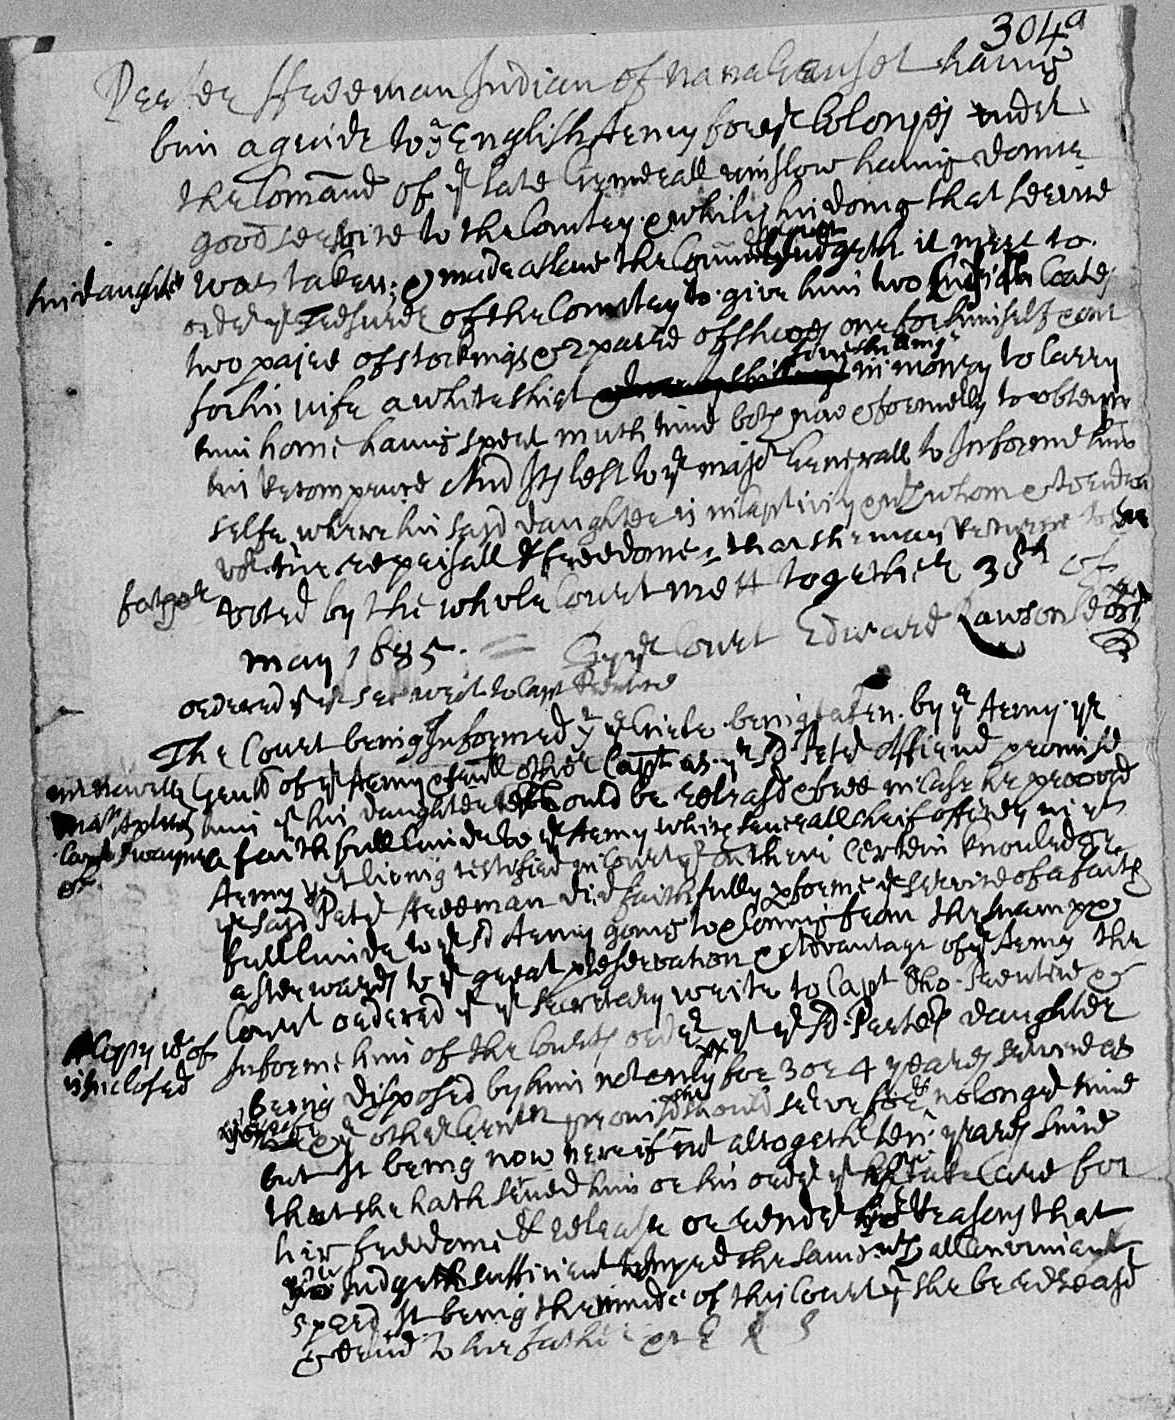 304a
Peeter ffreeman Indian of naraganset having
bin a guide to ye English Army for ye Colonyes under
the Comand of ye late Generall winslow having donne
good service to the Country & while his doing that service
his daughter was taken; & made a slave the Councill Judgeth it meet to
order ye Tresurer of the Country to give him two English Coates
two pajre of stockings & 2 paire of shooes one for himself & one
for his wife a white shirt five shillings in money to carry
him home having spent much time both now & formerly to obteyne
his Recompence And Its left to ye major Generall to Informe him
selfe where his said daughter is in captivity & with whom & to endea
vor hir reprisall & freedome, that she may Returne to hir
father voted by the whole Court mett together 30th of
may 1685. By ye Court Edward Rawson Secrety
ordered yt ye secr write to Capt Prentice
The Court being Informed yt ye Girle being taken by ye Army ye
Genll of ye Army & severall other Capts as ye sd Peter Affirmd promised
him yt his daughter should be releasd & free in case he prooved
Capt Swayne a faithfull Guide to ye Army which severall cheif officers in ye
&c. Army yt living testifjed in Court yt on their certein knowledge
ye said Peter ffreeman did faithfully performe ye service of a faith
full Guide to ye sd Army going to & Coming from the swamp &
afterwards to ye great preservation & Advantage of ye Army the
Court ordered yt ye Secretary write to Capt Tho. Prentice &
A Copy w of Informe him of the Courts order & yt ye sd Peeters daughter
is inclosed being disposed by him not only for 3 or 4 yeares service as
he & ye other Gentn promised she should serve for & no longer time
but It being now neere if not altogether ten yeares since
that she hath served him or his order yt he take Care for
hir freedome & release or render his Reasons that
you Judgeth sufficient to Impead the same with all Convenient
speed It being the minde of this Court yt she be releasd
& send to hir father